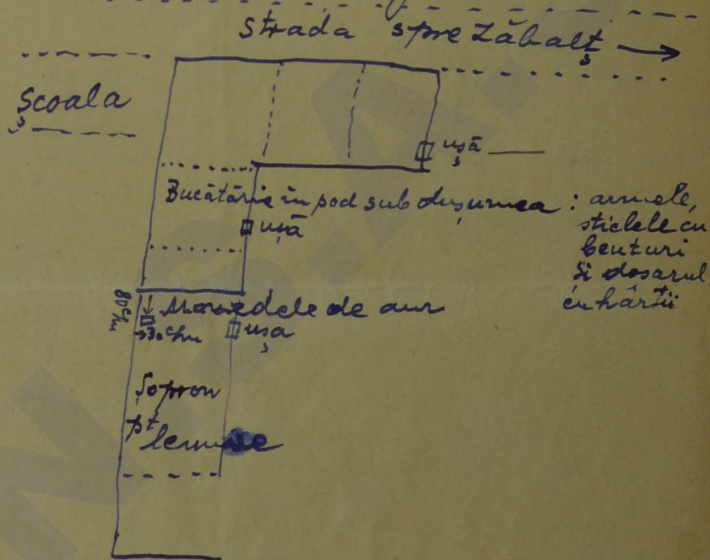 Strada spre Zăbalț
Școala
ușă
Bucătărie în pod sub dușumea : armele,
sticlele cu
beuturi
Si dosarul
cu hârtii
ușă
80 cm
Monedele de aur
30 cm
ușa
Șopron
pt
lemne